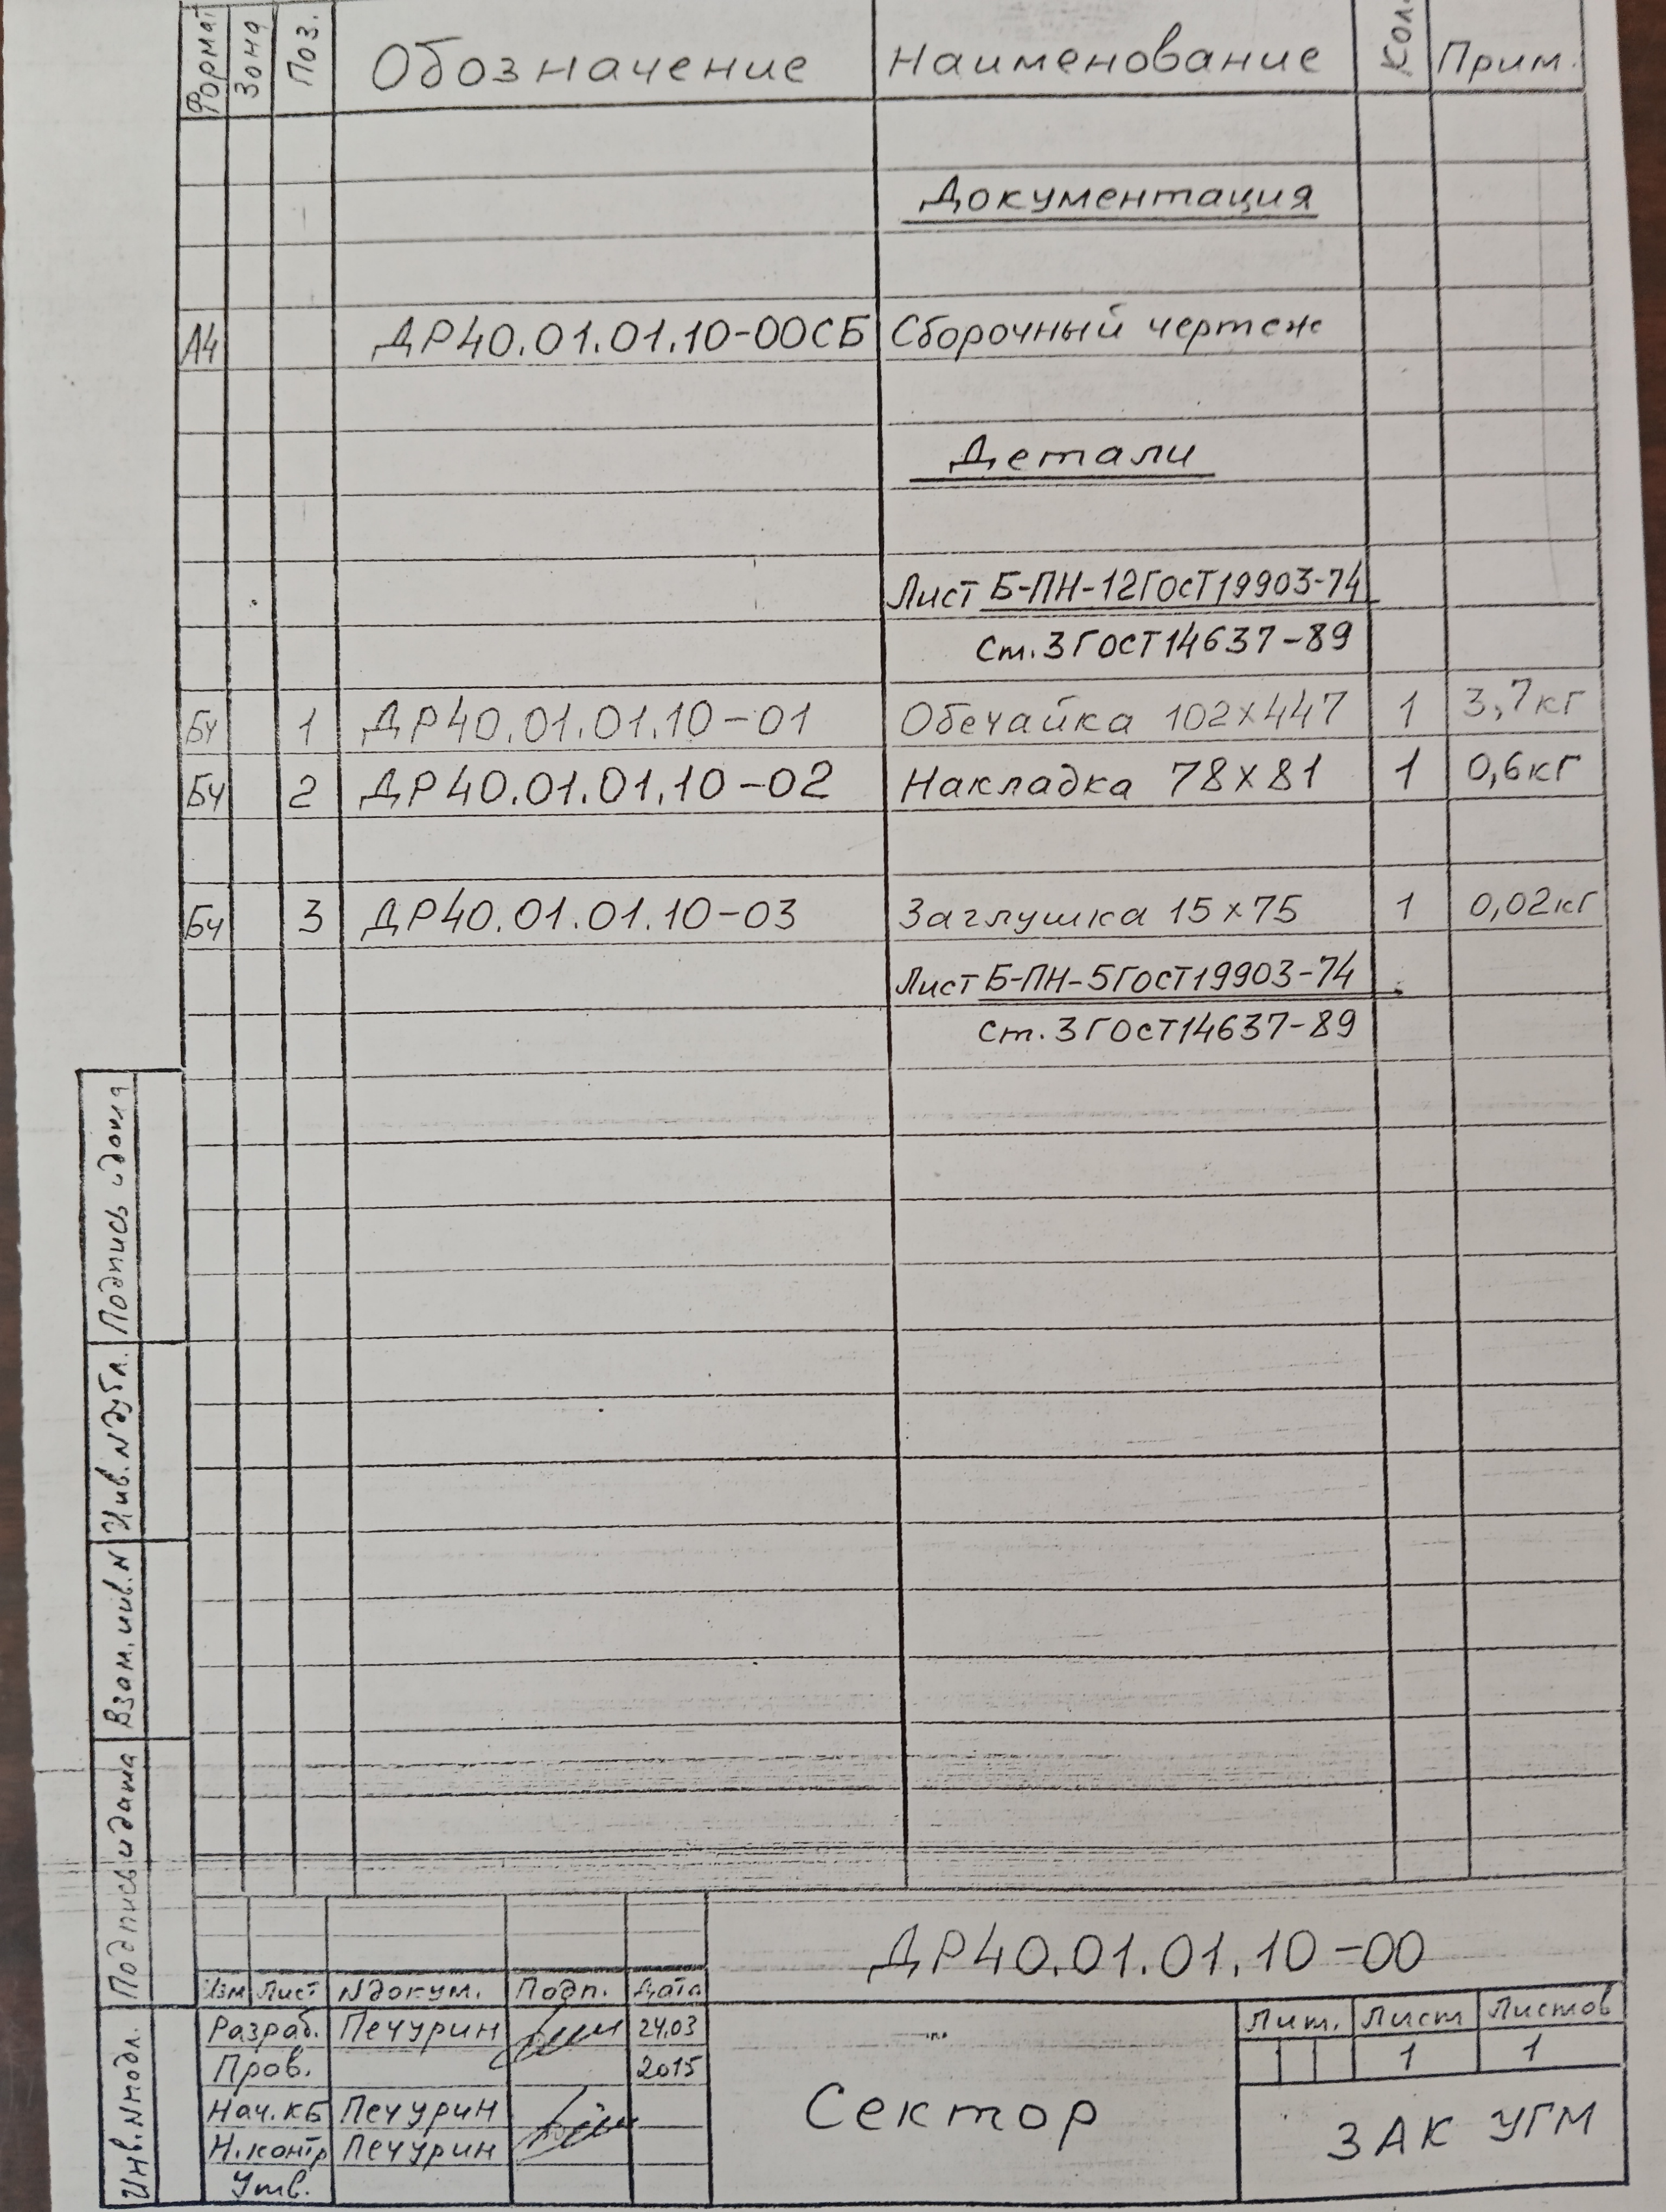 Формат Зона Поз. Обозначение Наименование Кол. Прим.
Документация
А4 ДР40.01.01.10-00СБ Сборочный чертеж
Детали
Лист Б-ПН-12ГОСТ19903-74
Ст.3ГОСТ14637-89
БЧ 1 ДР40.01.01.10-01 Обечайка 102х447 1 3,7кг
БЧ 2 ДР40.01.01.10-02 Накладка 78х81 1 0,6кг
БЧ 3 ДР40.01.01.10-03 Заглушка 15х75 1 0,02кг
Лист Б-ПН-5ГОСТ19903-74
Ст.3ГОСТ14637-89
Подпись и дата
Инв.Nдубл.
Взам.инв.N
Подпись и дата
Инв.Nподл.
ДР40.01.01.10-00
Изм Лист Nдокум. Подп. Дата
Разраб. Печурин 24.03
Пров. 2015
Нач.КБ Печурин
Н.контр Печурин
Утв.
Сектор
Лит. Лист Листов
1 1
ЗАК УГМ